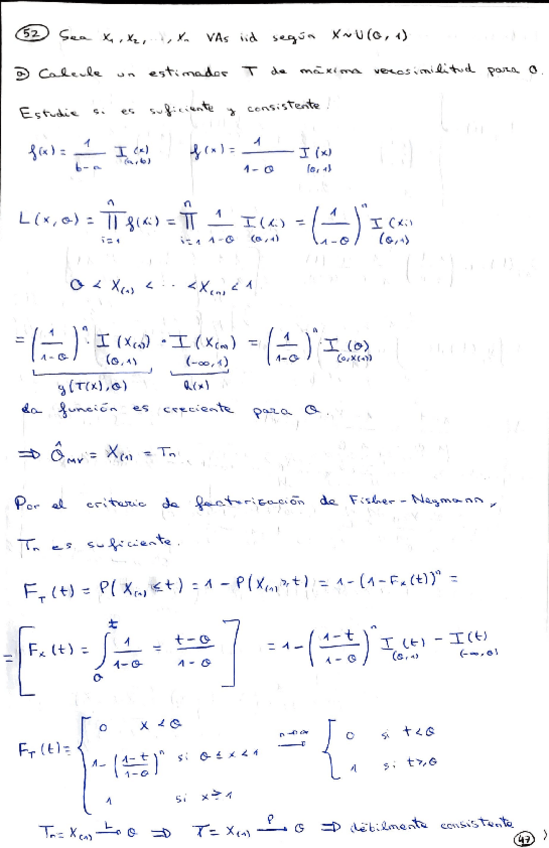 52 Sea X₁, X₂, ..., Xₙ VAs iid según X~U(θ, 1)
a) Calcule un estimador T de máxima verosimilitud para θ.
Estudie si es suficiente y consistente.
f(x) = 1/(b-a) I(x)_(a,b)   f(x) = 1/(1-θ) I(x)_(θ,1)
L(x,θ) = ∏_{i=1}^{n} f(xᵢ) = ∏_{i=1}^{n} 1/(1-θ) I(xᵢ)_(θ,1) = (1/(1-θ))ⁿ I(xᵢ)_(θ,1)
θ < X₍₁₎ < ... < X₍ₙ₎ < 1
= (1/(1-θ))ⁿ · I(X₍₁₎)_(θ,1) · I(X₍ₙ₎)_(-∞,1) = (1/(1-θ))ⁿ · I(θ)_(0,X₍₁₎)
g(T(x),θ)   h(x)
La función es creciente para θ.
⇒ θ̂_MV = X₍₁₎ = Tₙ
Por el criterio de factorización de Fisher-Neymann,
Tₙ es suficiente.
F_T(t) = P(X₍₁₎ ≤ t) = 1 - P(X₍₁₎ ≥ t) = 1 - (1 - Fₓ(t))ⁿ =
= [Fₓ(t) = ∫_θ^t 1/(1-θ) = (t-θ)/(1-θ)] = 1 - ((1-t)/(1-θ))ⁿ I(t)_(θ,1) - I(t)_(-∞,θ)
F_T(t) = { 0   x < θ
1 - ((1-t)/(1-θ))ⁿ si θ ≤ x < 1   n→∞ ⟶   { 0 si t < θ
1 si x ≥ 1   1 si t ≥ θ
Tₙ = X₍₁₎ —L→ θ ⇒ T = X₍₁₎ —P→ θ ⇒ débilmente consistente
47